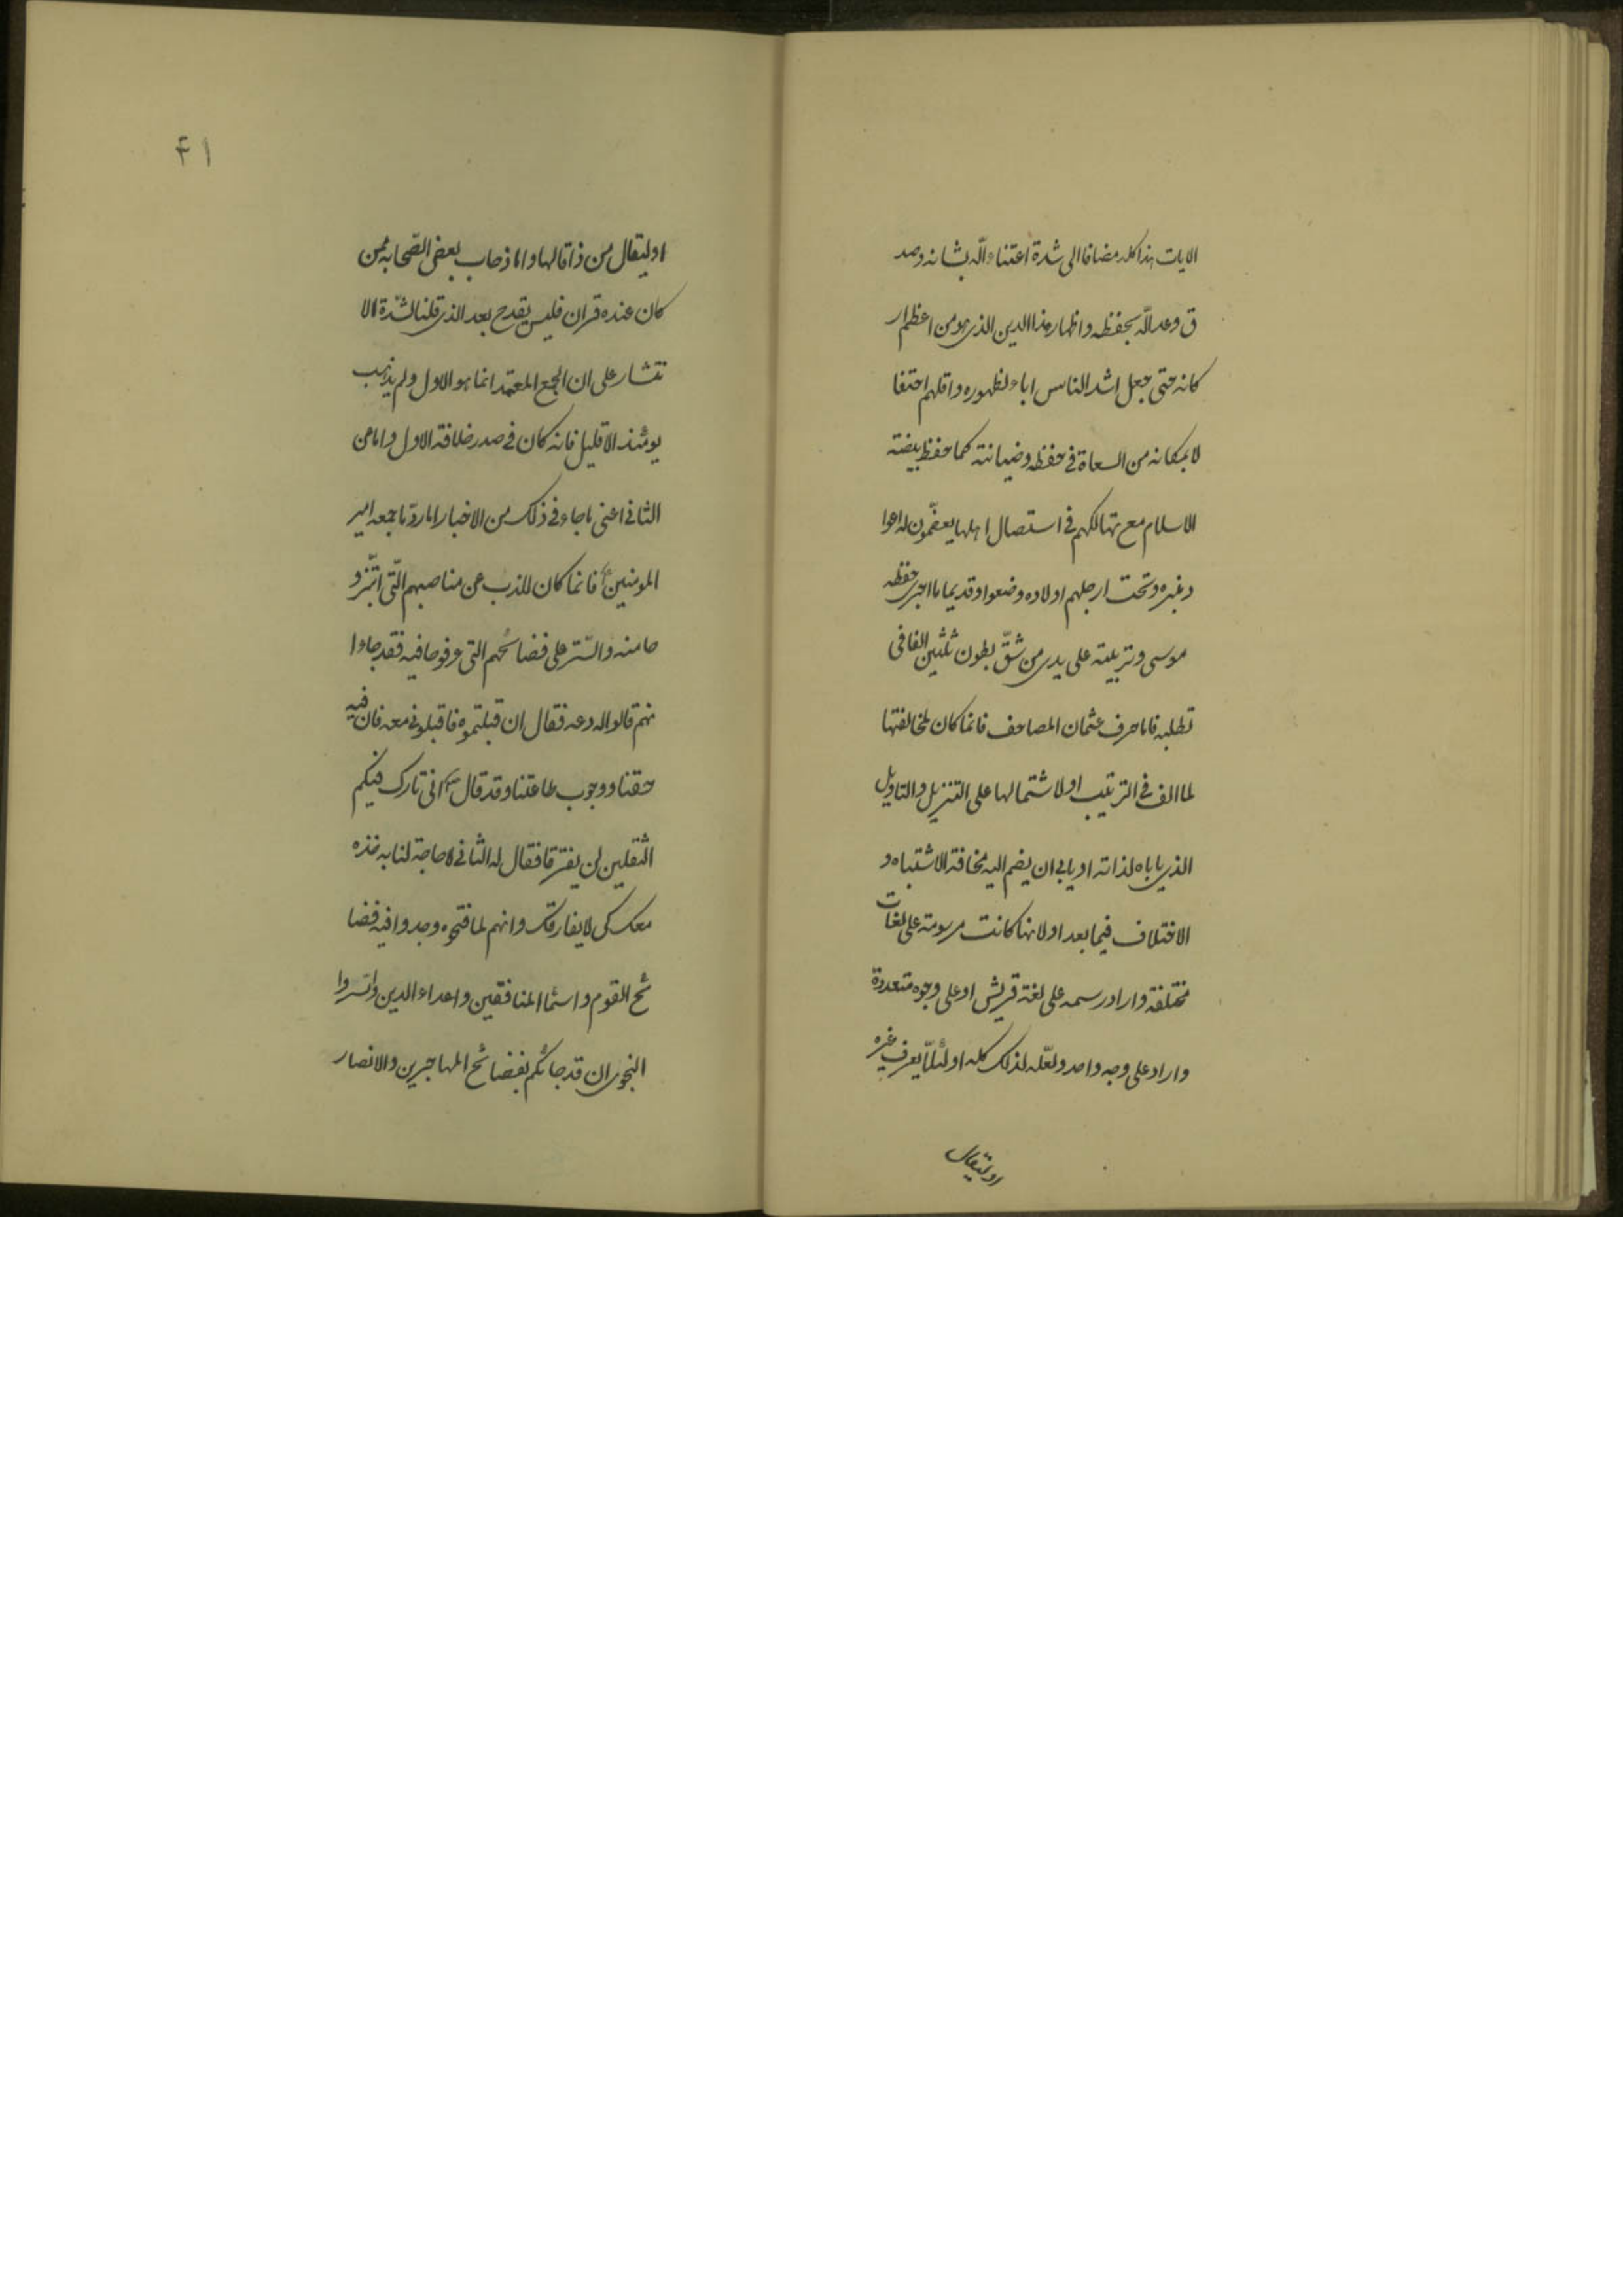 الايات هذا كله مضافا الى شدة اعتناء الله بشانه وصد
ق وعد الله بحفظه واظهار هذا الدين الذي هو من اعظم ار
كانه حتى جعل اشد الناس اباء لظهوره واقلهم احتفا
لا بمكانه من السعاة في حفظه وصيانته كما حفظ بيضته
الاسلام مع تهالكهم في استصال اهلها يعضمون له اعوا
د غيره وتحت ارجلهم اولاده وضعوا وقديما ما اجرى حفظه
موسى وتربيته على يدى من شق بطون ثلثين الفا فى
تطلبه فاما حرف عثمان المصاحف فانما كان لمخالفتها
لما الف في الترتيب او لاشتمالها على التنزيل والتاويل
الذي ياباه لذاته او يابى ان يضم اليه مخافة الاشتباه و
الاختلاف فيما بعد او لانها كانت مرسومة على لغات
مختلفة واراد رسمه على لغة قريش او على وجوه متعددة
واراد على وجه واحد ولعله لذلك كله او لئلا يعرف غيره
او ليقال
۴۱
او ليقال من ذا قالها واما ذهاب بعض الصحابه ممن
كان عنده قران فليس يقدح بعد الذي قلنا لشدة الا
نتشار على ان الجمع المعتمد انما هو الاول ولم يذهب
يومئذ الا قليل فانه كان في صدر خلافة الاول واما عن
الثاني اعنى ما جاء في ذلك من الاخبار اما رد ما جمعه امير
المومنين ع فانما كان للذب عن مناصبهم التي ابتزو
ها منه والستر على فضائحهم التي عرفوها فيه فقد جاوا
نهم قالوا له دعه فقال ان قبلتموه فاقبلوني معه فان فيه
حقنا ووجوب طاعتنا وقد قال ص انى تارك فيكم
الثقلين لن يفترقا فقال له الثاني لا حاجة لنا به خذه
معك كى لا يفارقك وانهم لما فتحوه وجدوا فيه فضا
ئح القوم واسماء المنافقين واعداء الدين واسروا
النجوى ان قد جائكم بفضائح المهاجرين والانصار